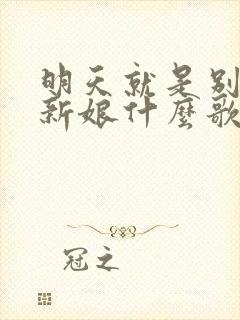 明天就是别
新娘什麼歌
冠之